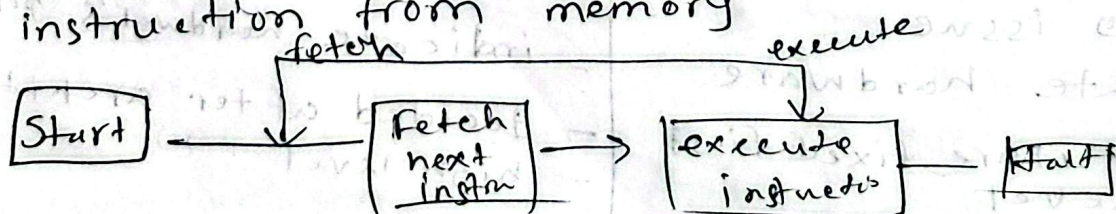 instruction from memory
fetch execute
Start
Fetch
next
instrn
execute
Halt